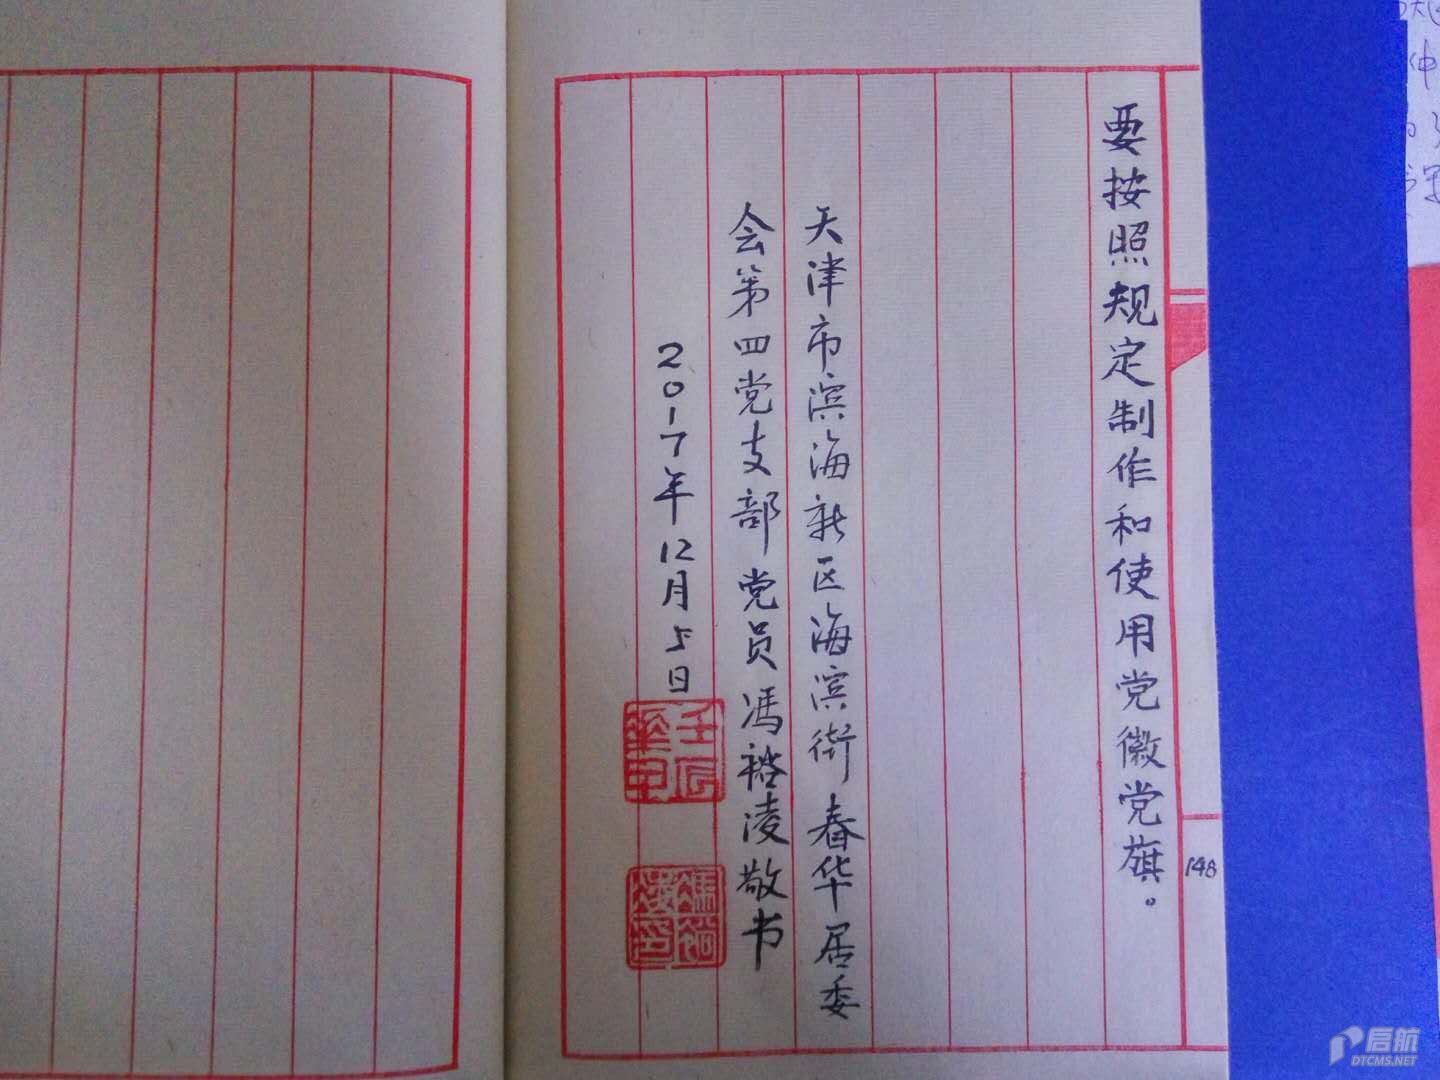 要按照规定制作和使用党徽党旗。
天津市滨海新区海滨街春华居委
会第四党支部党员冯裕凌敬书
2017年12月5日
148
冯裕凌印
启航
DTCMS.NET